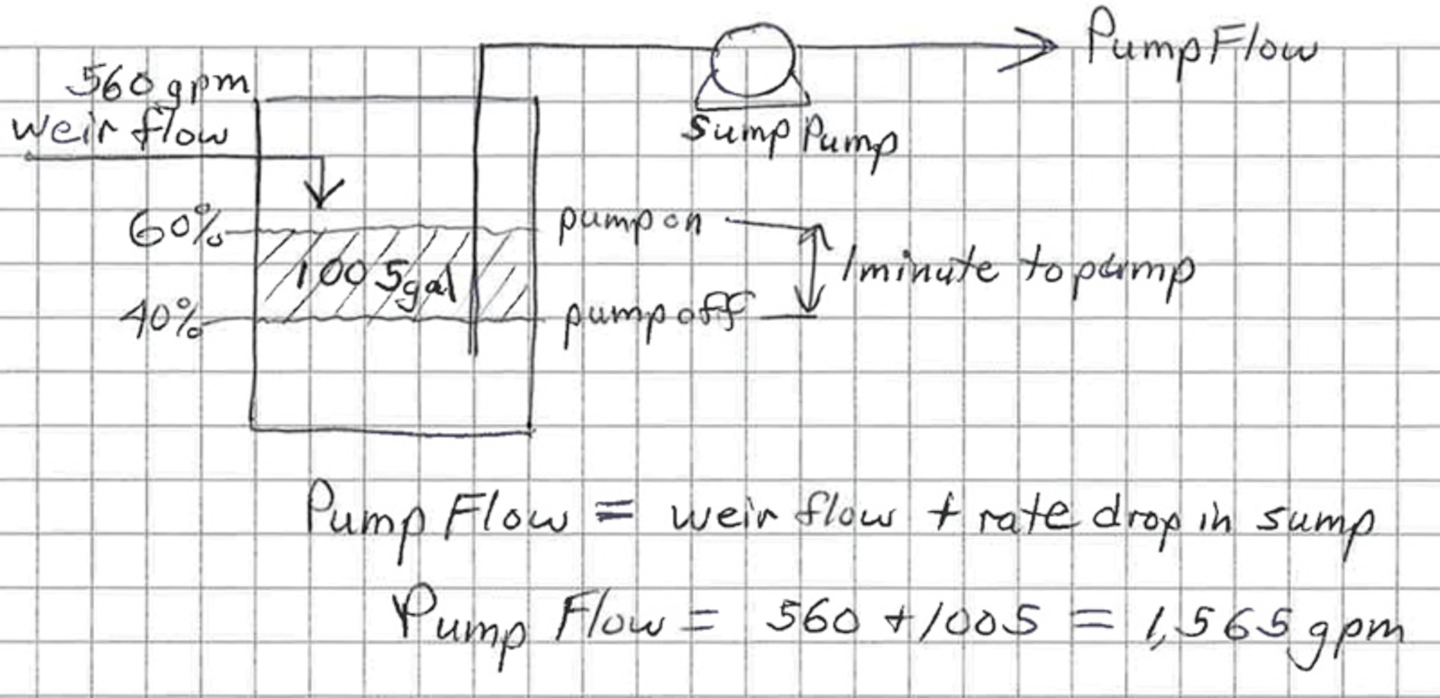 560 gpm
weir flow
Pump Flow
Sump Pump
60%
pump on
1005gal
1minute to pump
40%
pump off
Pump Flow = weir flow + rate drop in sump
Pump Flow = 560 + 1005 = 1,565 gpm